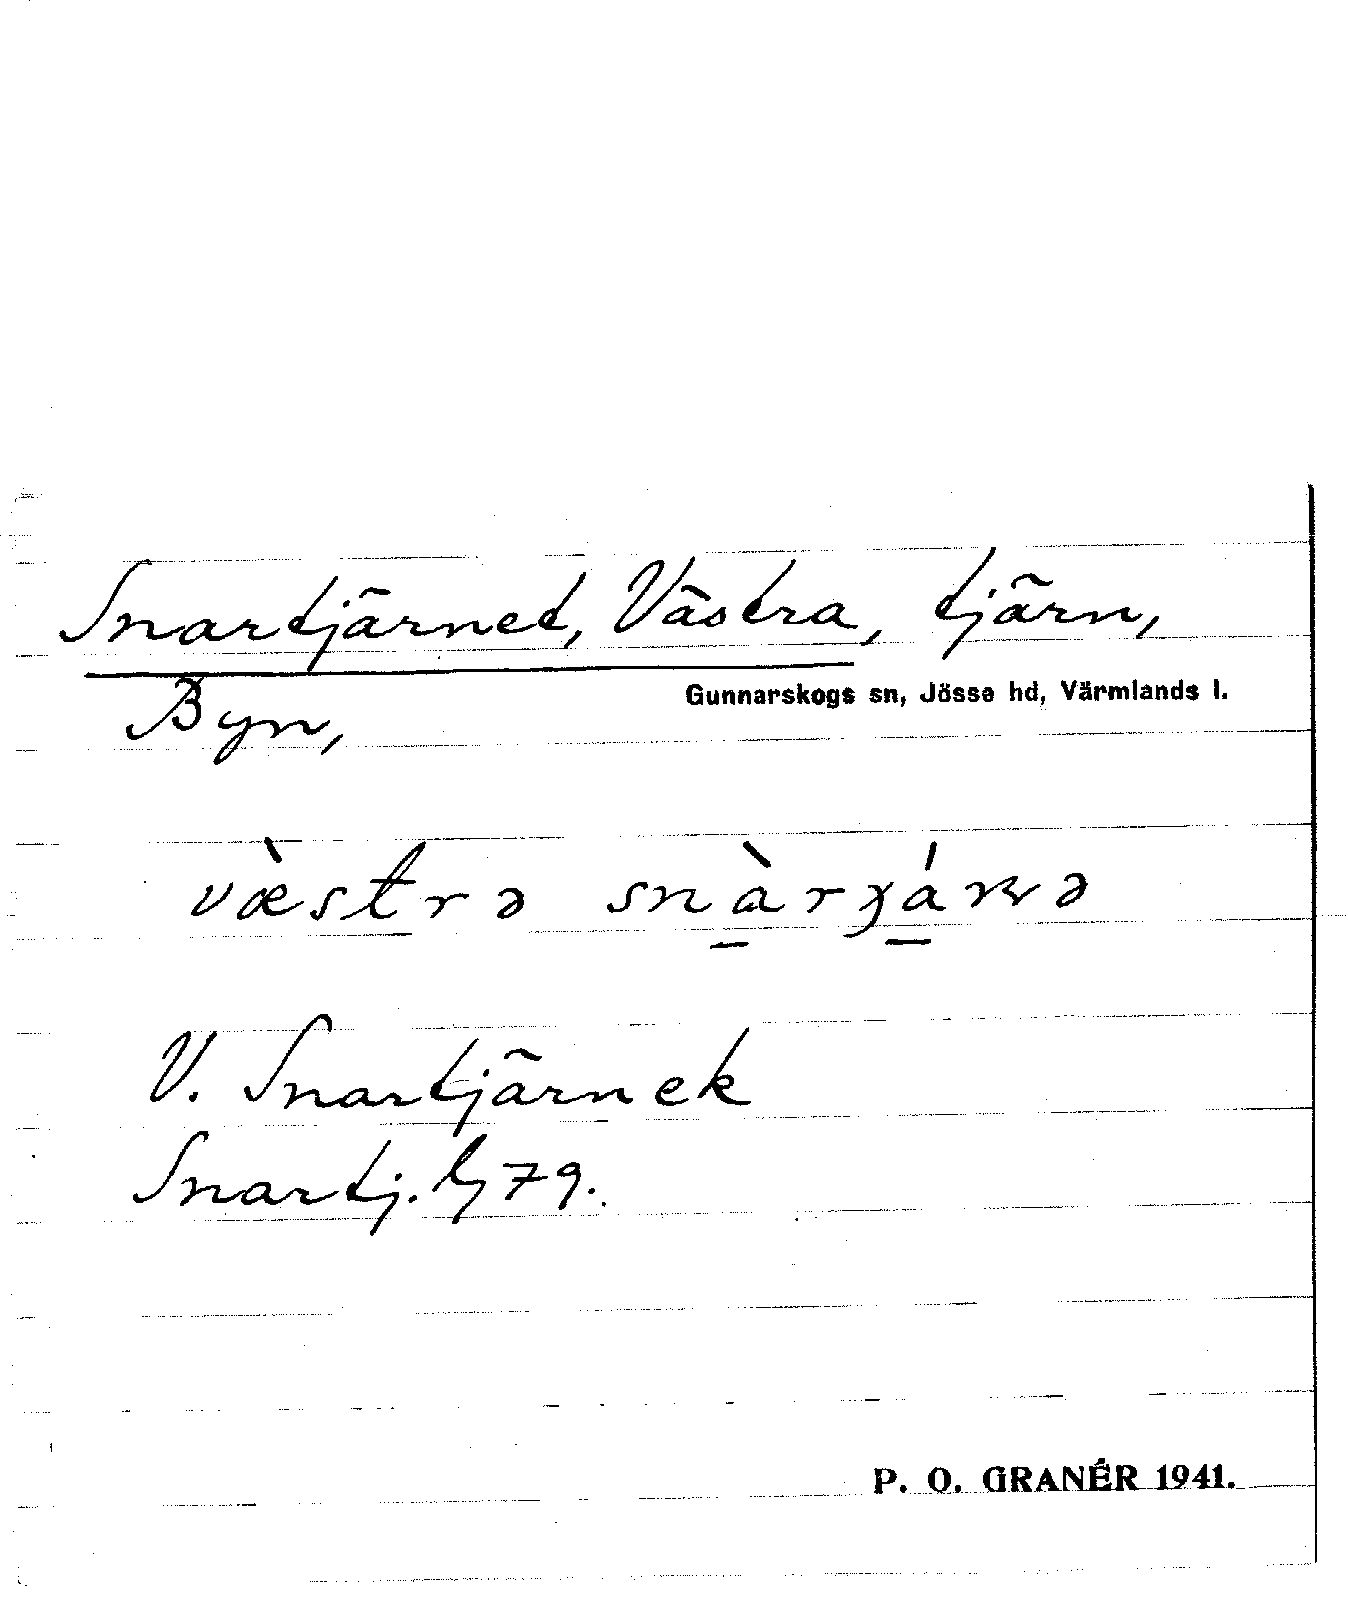 Snartjärnet, Västra, tjärn,
Gunnarskogs sn, Jösse hd, Värmlands l.
Byn,
væ̀strə snàrʒánə
V. Snartjärnek
Snartj. 79.
P. O. GRANÉR 1941.